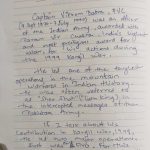 Captain Vikram Batra, PVC
(9 Sept 1974 - 7 July 1999) was an officer
of the Indian Army, awarded with
Param Vir Chakra, India's highest
and most prestigious award for
his actions during
the 1999 Kargil war.
He led one of the toughest
operations in the mountain
warfare in Indian History.
He was often referred to
as "Sher Shah" ("Lion King") in
the intercepted messages of the
Pakistan Army.
contribution in Kargil War, 1999.
He led two major operations